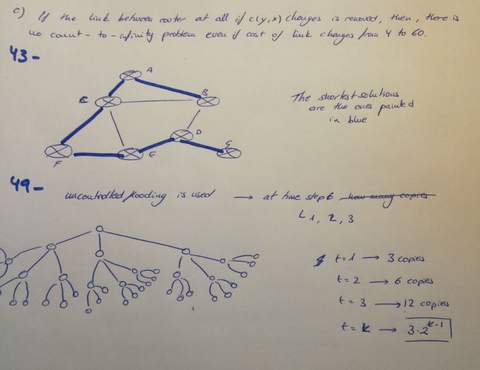 c) If the link between router at all if c(y,x) changes is removed, then, there is
no count-to-infinity problem even if cost of link changes from 4 to 60.
43-
A
C
B
The shortest solutions
are the ones painted
in blue
D
G
F
E
49-
uncontrolled flooding is used → at time step t how many copies
1, 2, 3
t=1 → 3 copies
t=2 → 6 copies
t=3 → 12 copies
t=k → 3·2^{k-1}